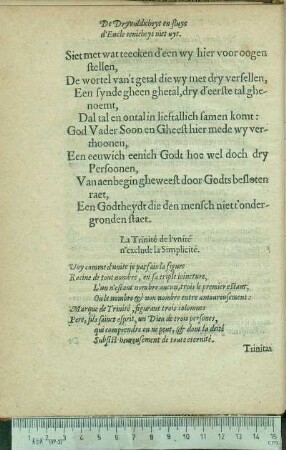 De Dryvuldicheyt en sluyt
d'Encle eenicheyt niet uyt.
Siet met wat teecken d'een wy hier voor oogen
stellen,
De wortel van't getal die wy met dry versellen,
Een synde gheen ghetal, dry d'eerste tal ghe-
noemt,
Dal tal en ontal in liefstallich samen komt:
God Vader Soon en Gheest hier mede wy ver-
thoonen,
Een eeuwich eenich Godt hoe wel doch dry
Persoonen,
Van aenbegin gheweest door Godts besloten
raet,
Een Godtheydt die den mensch niet t'onder-
gronden staet.
La Trinité de l'vnité
n'exclude la Simplicité.
Voy comme d'unité je parfais la figure
Racine de tout nombre, en sa triple jointure,
L'un n'estant nombre aucun, trois le premier estant,
Ou le nombre & non nombre entre amoureusement:
Marque de Trinité, figurant trois colomnes
Pere, fils sainct esprit, un Dieu de trois persones,
qui comprendre on ne peut, & dont la deité
Subsist heureusement de toute eternité.
Trinitas
1 2 3 4 5 6 7 8 9 10 11 12 13 14 15